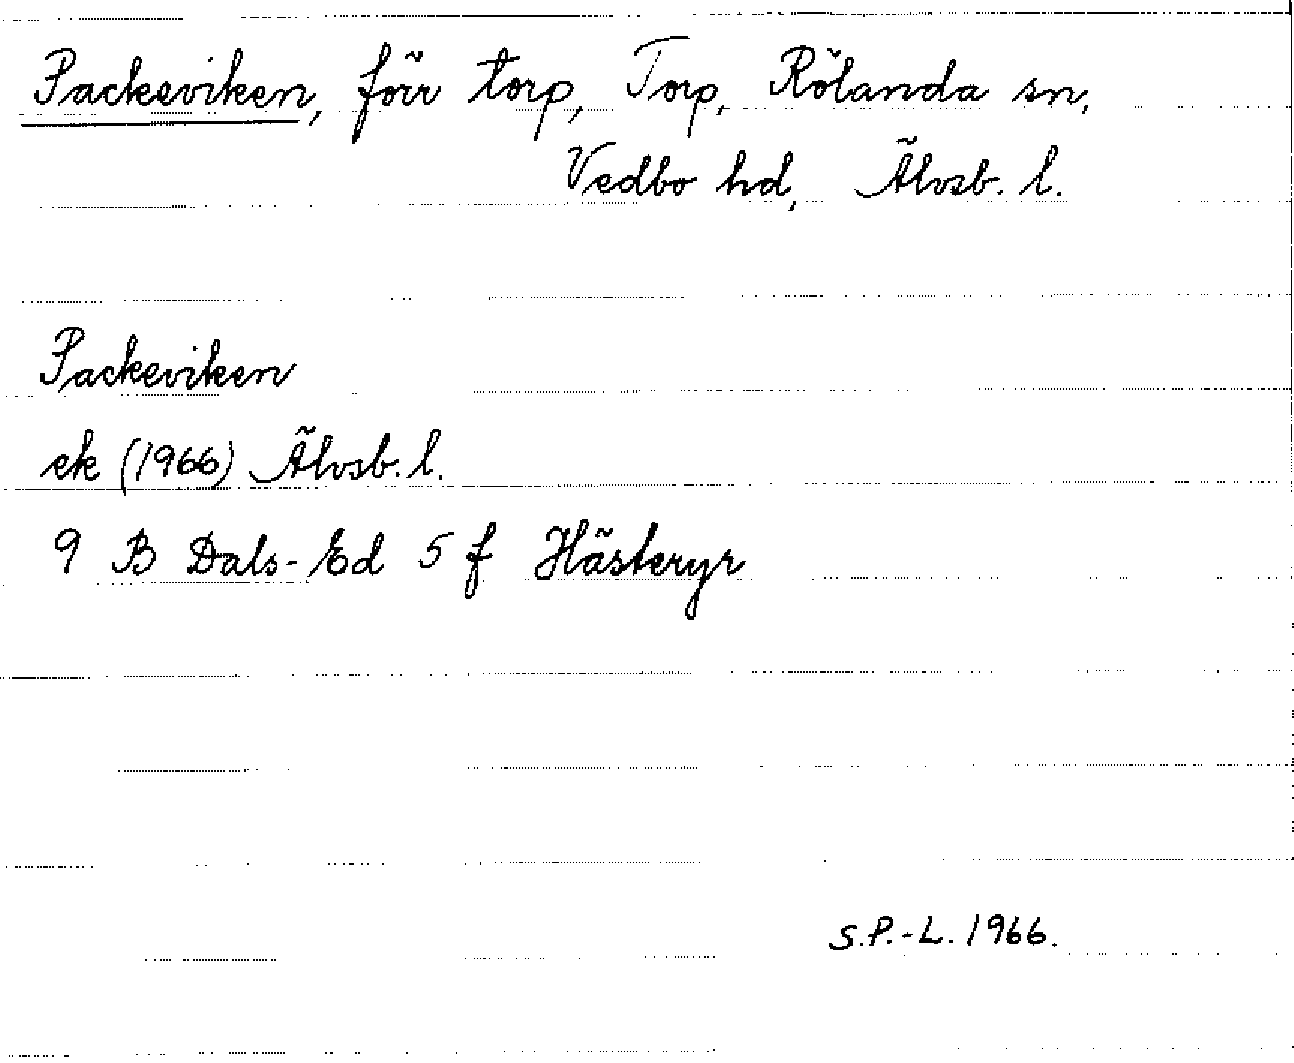 Packeviken, förr torp, Torp, Rölanda sn,
Vedbo hd, Älvsb. l.
Packeviken
ek (1966) Älvsb. l.
9 B Dals-Ed 5 f Hästeryr
S.P.-L. 1966.